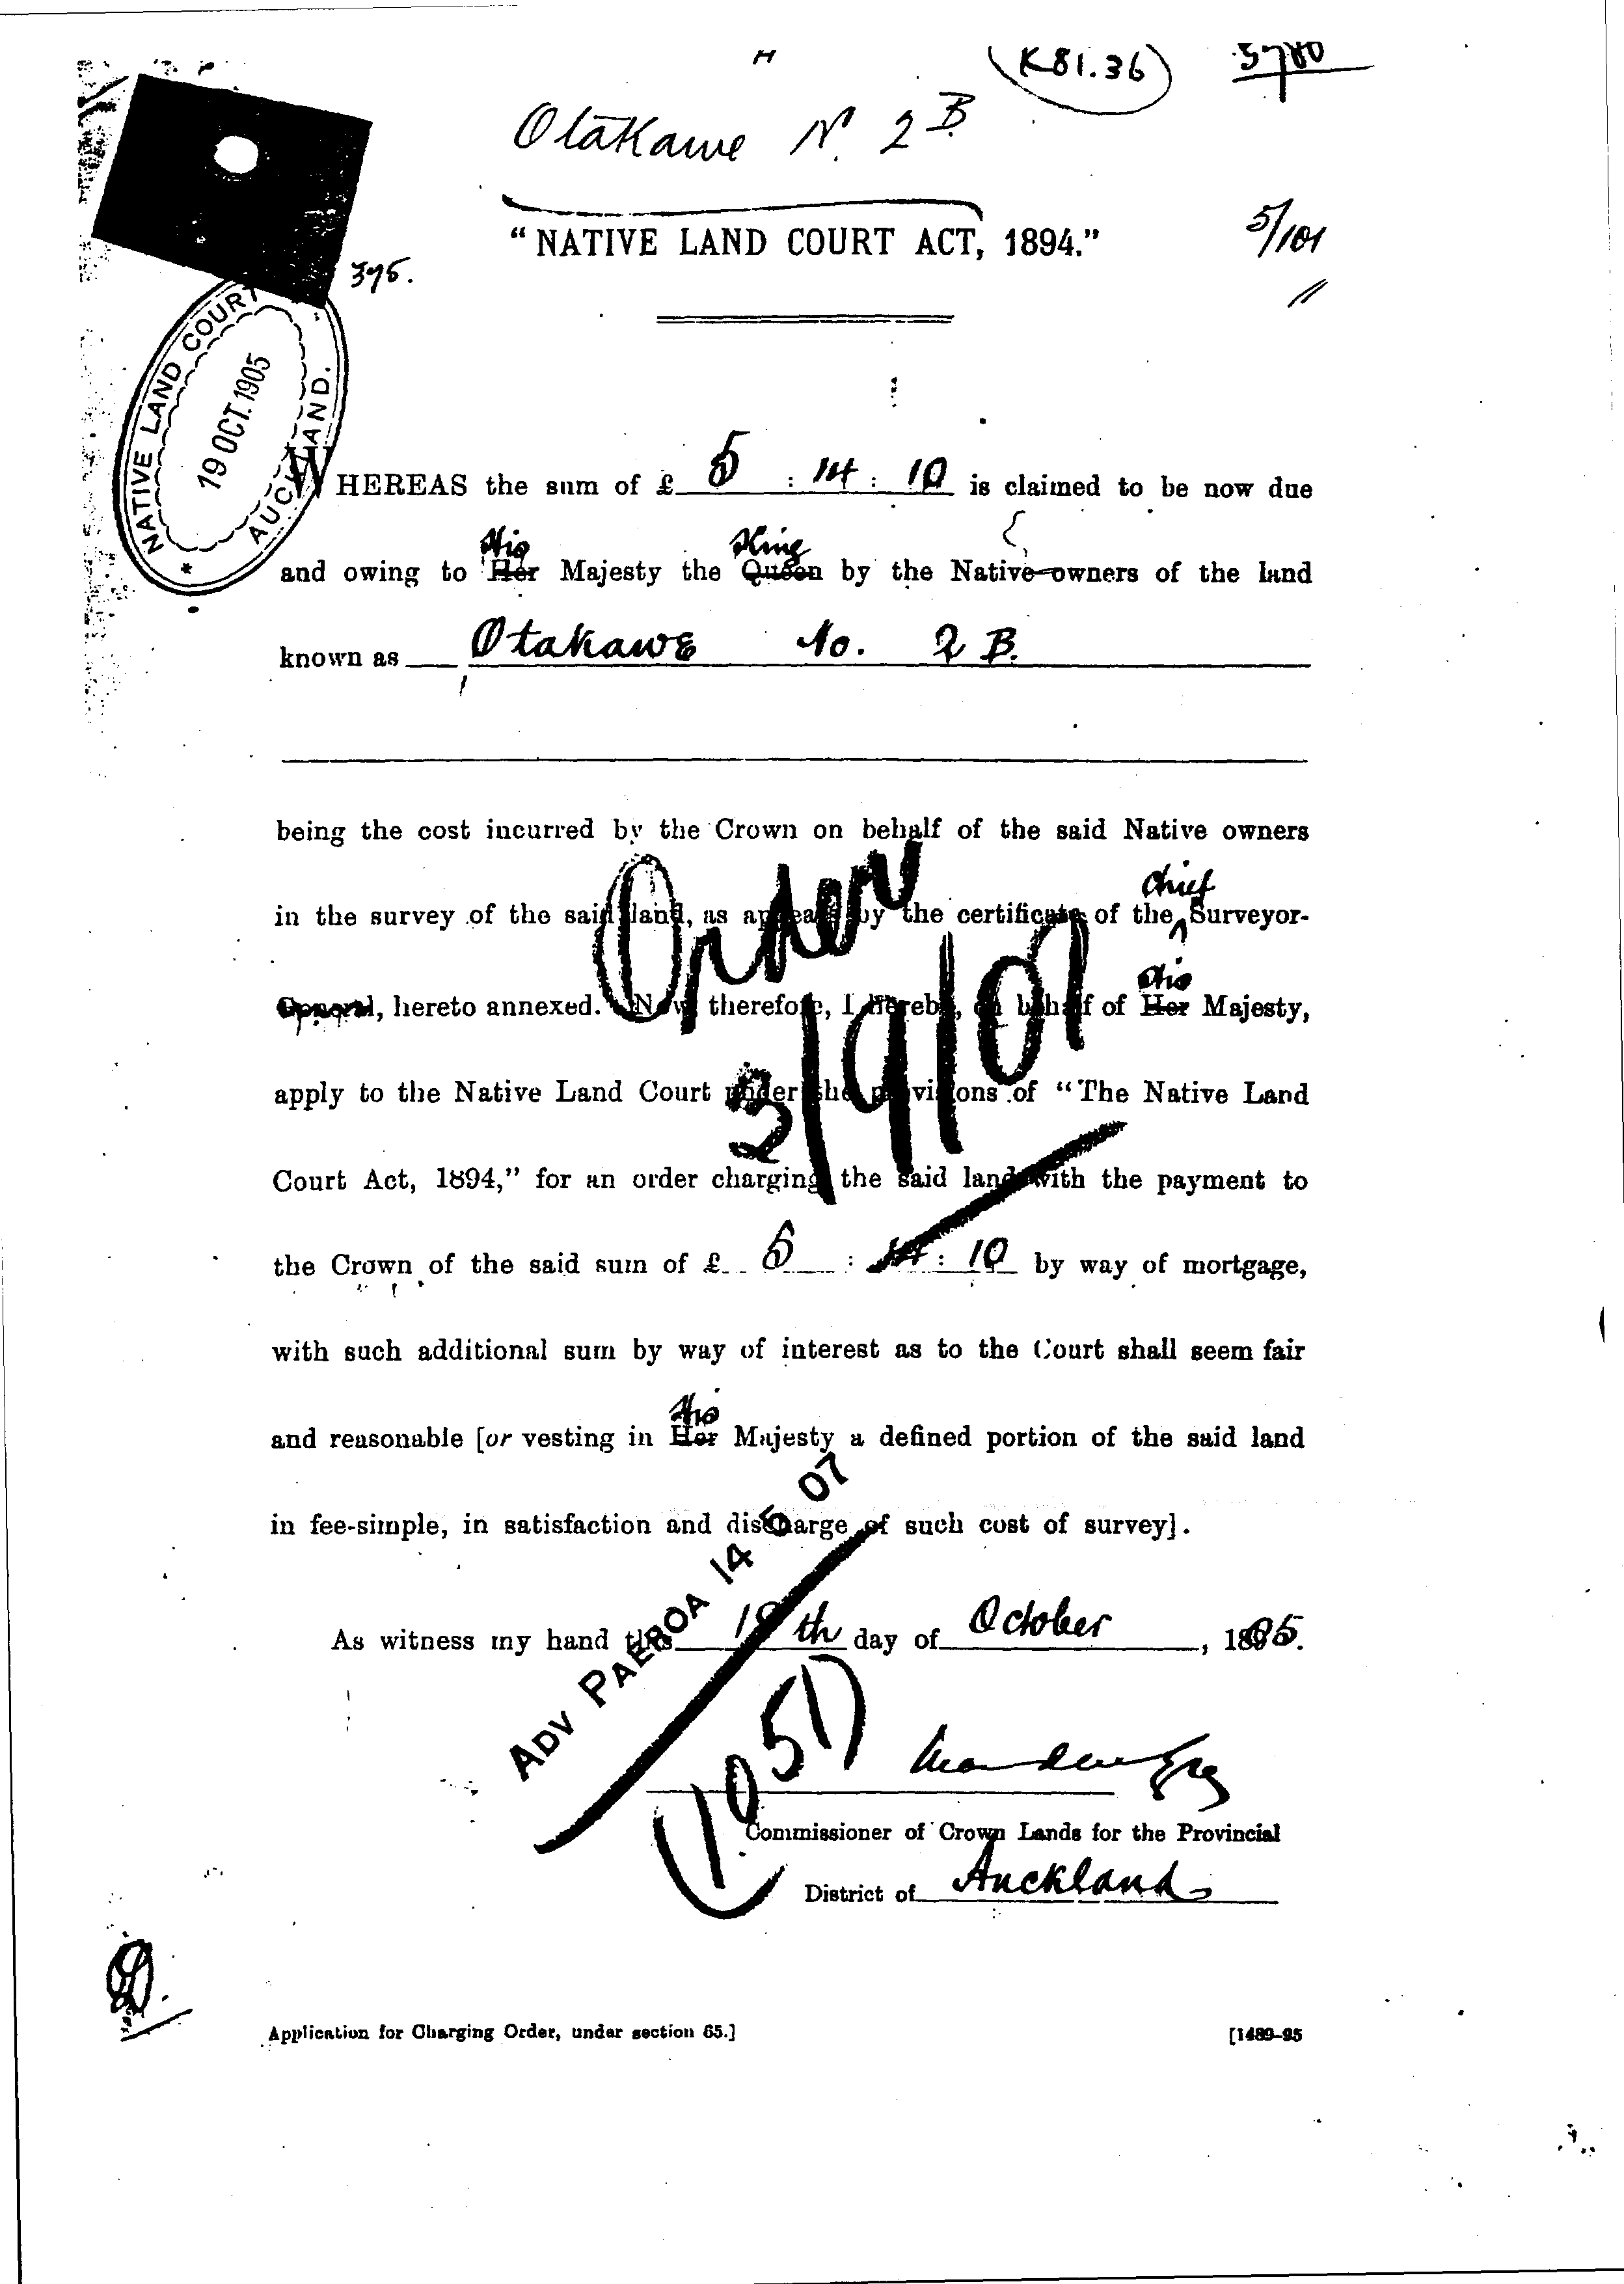 (K81.36) 5780
Otakawe No. 2B
"NATIVE LAND COURT ACT, 1894."
5/101
375.
NATIVE LAND COURT
19 OCT. 1905
AUCKLAND.
WHEREAS the sum of £ 5 : 14 : 10 is claimed to be now due
His King
and owing to Her Majesty the Queen by the Native owners of the land
known as Otakawe No. 2B.
being the cost incurred by the Crown on behalf of the said Native owners
Chief
in the survey of the said land, as appears by the certificate of the Surveyor-
His
General, hereto annexed. Now, therefore, I hereby, on behalf of Her Majesty,
Order
3/9/07
apply to the Native Land Court under the provisions of "The Native Land
Court Act, 1894," for an order charging the said land with the payment to
the Crown of the said sum of £ 5 : 14 : 10 by way of mortgage,
with such additional sum by way of interest as to the Court shall seem fair
His
and reasonable [or vesting in Her Majesty a defined portion of the said land
in fee-simple, in satisfaction and discharge of such cost of survey].
ADV PAEROA 14 5 07
As witness my hand this 19th day of October, 1905.
(1051)
Commissioner of Crown Lands for the Provincial
District of Auckland
Application for Charging Order, under section 65.] [1489-95